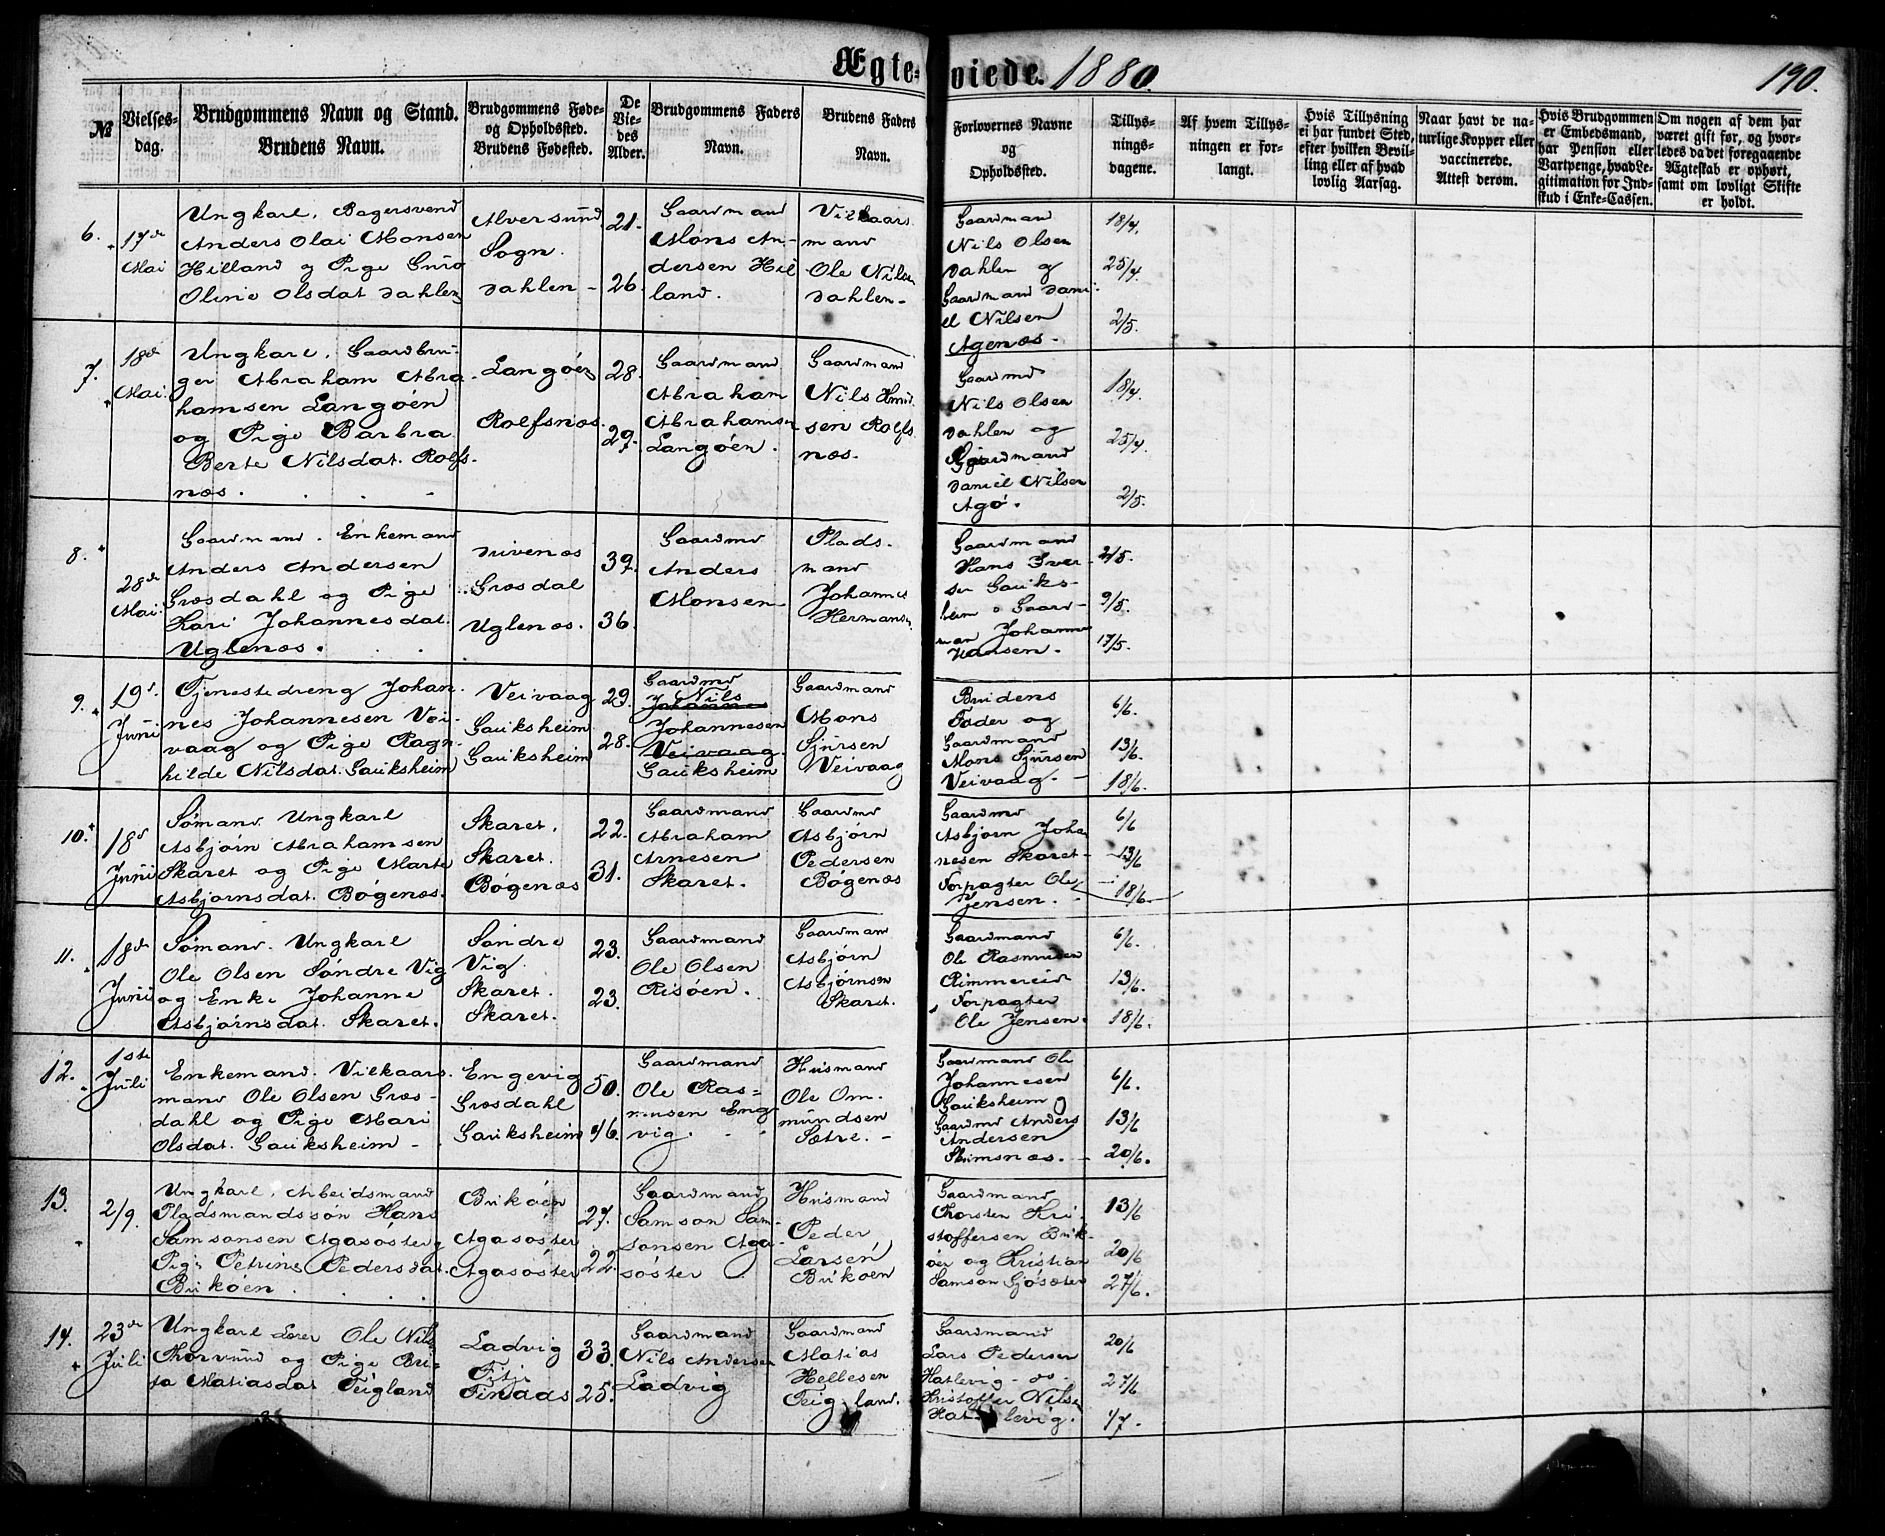 Ægte-viede. 1880. 190.
№
Vielses-dag.
Brudgommens Navn og Stand.
Brudens Navn.
Brudgommens Føde- og Opholdssted.
Brudens Fødested.
De Vie-des Alder.
Brudgommens Faders Navn.
Brudens Faders Navn.
Forlovernes Navne og Opholdssted.
Tillys-nings-dagene.
Af hvem Tillys-ningen er for-langt.
Hvis Tillysning ei har fundet Sted, efter hvilken Bevil-ling eller af hvad lovlig Aarsag.
Naar havt de na-turlige Kopper eller vaccinerede. Attest derom.
Hvis Brudgommen er Embedsmand, har Pension eller Vartpenge, hvad Le-gitimation for Ind-skud i Enke-Cassen.
Om nogen af dem har været gift før, og hvor-ledes da det foregaaende Ægteskab er ophørt, samt om lovligt Skifte er holdt.
6.
17de
Mai
Ungkarl. Bagersvend
Anders Olai Monsen
Hilland og Pige Guro
Oline Olsdat Dahlen
Alversund
Sogn.
Dahlen -
21.
26.
Gaardmand
Mons An-
dersen Hil
land.
Vilkaars
mand
Ole Nilsen
Dahlen -
Gaardman
Nils Olsen
Dahlen og
Gaardmand Dani-
el Nilsen
Agenæs.
18/4.
25/4
2/5.
7.
18de
Mai.
Ungkarl. Gaardbru-
ger Abraham Abra-
hamsen Langöen
og Pige Barbra
Berte Nilsdat. Rolfs-
næs.
Langöen
Rolfsnæs.
28.
27.
Gaardmand
Abraham
Abrahamsen
Langöen.
Gaardmand
Nils
sen Rolfs
næs.
Gaardmd
Nils Olsen
Dahlen og
Gaardmand
Daniel Nilsen
Agö.
18/4.
25/4
2/5.
8.
28de
Mai.
Gaardmand. Enkemand
Anders Andersen
Græsdahl og Pige
Kari Johannesdat.
Uglenæs.
Drivenæs
Græsdal
Uglenæs.
39.
36.
Gaardmd
Anders
Monsen
Plads-
mand
Johannes
Hermansen
Gaardmand
Hans Iver-
sen Gauks-
heim o Gaard-
man Johannes
Hansen.
2/5.
9/5.
17/5.
9.
19de
Juni
Tjenestedreng Johan-
nes Johannesen Vei-
vaag og Pige Ragn-
hilde Nilsdat. Gauksheim
Veivaag
Gauksheim
Gauksheim
29.
28.
Gaardmd
Nils
Johannes
Johannesen
Veivaag.
Gauksheim
Gaardmand
Mons
Sjursen
Veivaag
Brudens
Fader og
Gaardmand
Mons Sjursen
Veivaag. -
6/6.
13/6.
18/6.
10.
18d
Juni
Sømand. Ungkarl
Asbjørn Abrahamsen
Skaret og Pige Marte
Asbjørnsdat. Bögenæs.
Skaret.
Skaret.
Bögenæs
22.
31.
Gaardmand
Abraham
Arnesen
Skaret.
Gaardmd
Asbjørn
Pedersen
Bögenæs
Gaardmd
Asbjørn Joha
nesen Skaret -
Forpagter Ole
Jensen.
6/6
13/6
18/6.
11.
18de
Juni
Sømand. Ungkarl
Ole Olsen Søndre Vig
og Enke Johanne
Asbjørnsdat. Skaret.
Søndre
Vig.
Skaret.
Skaret.
23.
23.
Gaardmand
Ole Olsen
Risöen.
Gaardmand
Asbjørn
Asbjørnsen
Skaret.
Gaardmand
Ole Rasmusen
Rimmereid
Forpagter
Ole Jensen.
6/6.
13/6.
18/6.
12.
1ste
Juli
Enkemand. Vilkaars-
mand Ole Olsen Græs-
dahl og Pige Mari
Olsdat. Gauksheim -
Engevig
Græsdahl
Gauksheim
50.
46.
Gaardmand
Ole Ras-
musen Eng
vig.
Husmand
Ole Om-
mundsen
Sætre. -
Gaardmand Ole
Johannesen
Gauksheim og
Gaardmd Anders
Andersen
Skimsnæs. -
6/6.
13/6
20/6.
13.
2/9.
Ungkarl. Arbeidsmand
Pladsmandssön Hans
Samsonsen Agasøster og
Pige Petrine Pedersdat.
Brikøen
Brikøen
Agasøster
Agasøster
27.
22.
Gaardmand
Samson Sam-
sonsen Aga-
søster
Husmand
Peder
Larsen
Brikøen
Gaardmand
Thorsten Kri-
stoffersen Brik-
øen og Kristian
Samson Gjøsæter
13/6
20/6
27/6.
14.
23de
Juli
Ungkarl Lærer Ole Nils
Thorvund og Pige Bri-
ta Matiasdat Teigland
Ladvig
Fitje
Finaas
33.
25.
Gaardmand
Nils Andersen
Ladvig
Gaardmand
Matias
Hellesen
Teigland.
Gaardmand
Lars Pedersen
Hatlevig - do -
Kristoffer Nilsen
Hatlevig.
20/6
27/6
4/7.